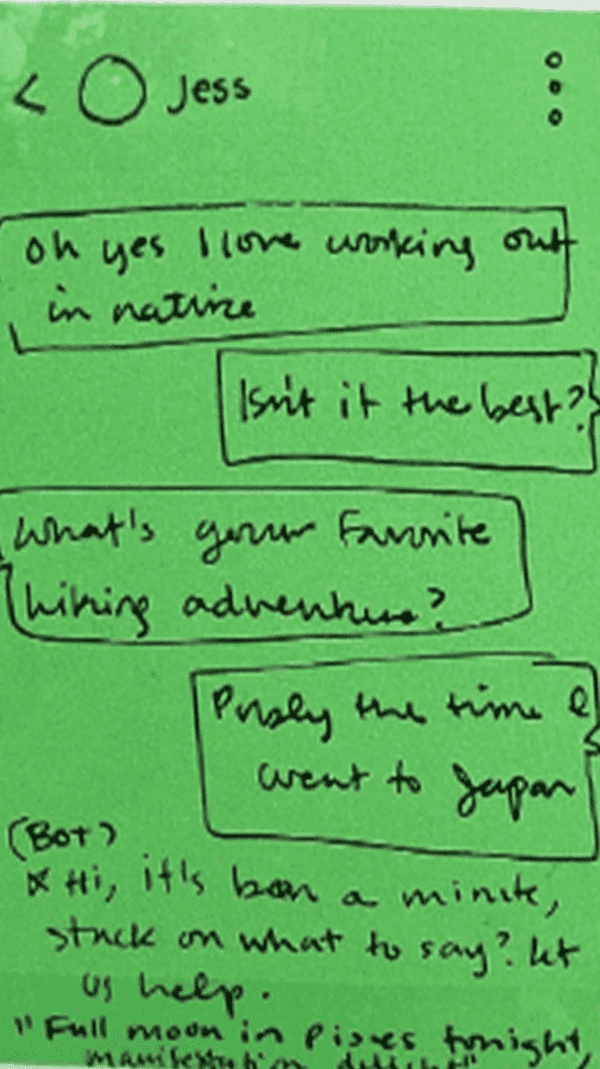 < Jess
Oh yes I love working out
in nature
Isn't it the best?
What's your Favorite
hiking adventure?
the time I
went to Japan
(Bot)
Hi, it's been a minute,
stuck on what to say? let
us help.
"Full moon in Pisces tonight,
manifestation